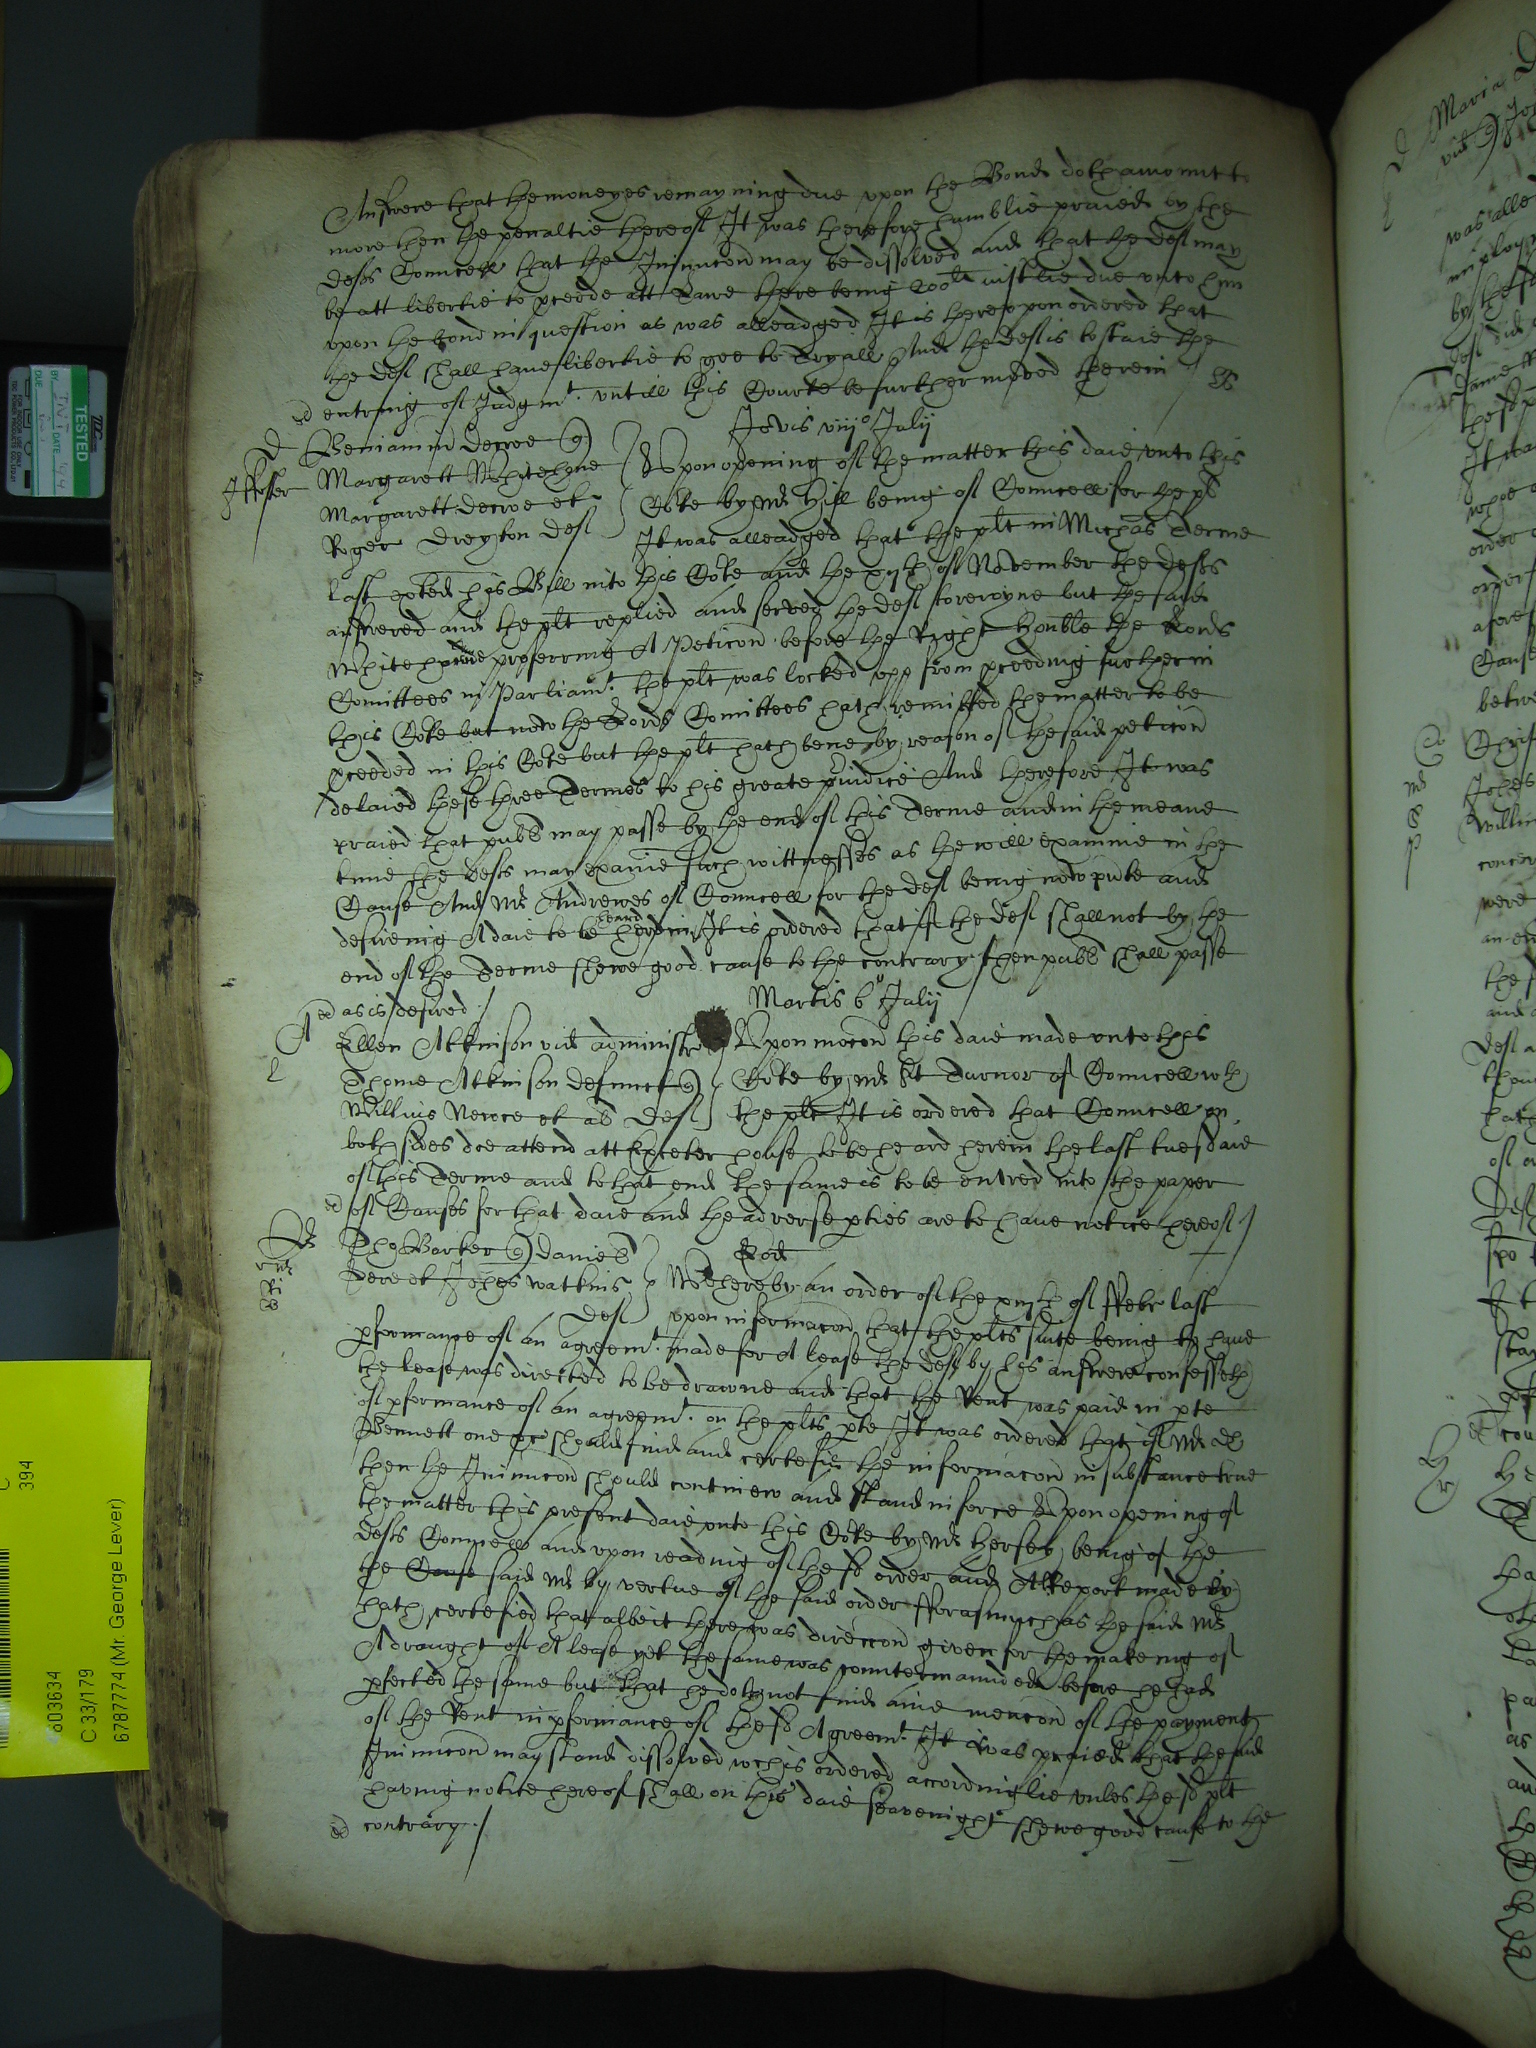 Answere that the moneyes remayning due upon the Bond doth amount to
more then the penaltie thereof It was therefore humblie praied by the
defts Councell that the Iniuncon may be dissolved and that the deft may
be att libertie to pceede att Lawe there being 200li iustlie due unto him
upon the bond in question as was alleadged It is hereupon ordered that
the deft shall have libertie to goe to Tryall And the deft is to staie the
entring of Judgmt. untill this Courte be further moved therein
Jovis viijo Julij
Beniamin Decroe q)
Margarett Whitehorne
Margarett Decroe et
Roger Dreyton deft
Upon opening of the matter this daie unto this
Cote by Mr Hill being of Councell for the pl
It was alleadged that the plt in Michas Terme
last exted his Bill into this Cote and the xijth of November the defts
answered and the plt replied and served the deft to reioyne but the said
Whitehorne proferring A Peticon before the Right Honble the Lords
Comittees in Parliamt. the plt was locked upp from pceeding further in
this Cote but now the Lords Comittees hath remitted the matter to be
pceeded in this Cote but the plt hath bene by reason of the said peticon
delaied these three Termes to his great preiudice And therefore It was
praied that publ may passe by the end of this Terme and in the meane
time the defts may examine such wittnesses as he will examine in the
Cause And Mr Andrewes of Councell for the deft being now pnte and
desireing A daie to be heard herein It is ordered that if the deft shall not by the
end of the Terme shewe good cause to the contrary then publ shall passe
as is desired /
Martis 6o Julij
Ellen Atkinson vid administr
Thome Atkinson defunct q)
Willius Neroce et al deft
Upon mocon this daie made unto this
Cote by Mr St Turnor of Councell wth
the plt It is ordered that Councell on
both sides doe attend att Exceter house to be heard herein the last tuesdaie
of this Terme and to that end the same is to be entred into the paper
of Causes for that daie and the adverse pties are to have notice hereof /
Tho Barker q) Daniel
Dere et Johes Watkins
deft
Eod
Whereby an order of the xvijth of ffebr last
upon informacon that the plts suite being to have
pformance of an agreemt. made for A lease the deft by his answere confesseth
the lease was directed to be drawne and that the Rent was paid in pte
of pformance of an agreemt. on the plts pte It was ordered that if Mr
Bennett one &c should find and certefie the informacon in substance true
then the Iniuncon should contniew and stand in force Upon opening of
the matter this present daie unto this Cote by Mr Hersey being of the
defts Councell and upon reading of the sd order and A Report made by
the Cause said Mr by vertue of the said order fforasmuch as the said Mr
hath certefied that albeit there was direccon given for the makeing of
A draught of A lease yet the same was countermanded before he had
pfected the same but that he doth not find anie mencon of the payment
of the Rent in pformance of the sd Agreemt. It was praied that the said
Iniuncon may stand dissolved wch is ordered accordinglie unles the sd plt
having notice hereof shall on this daie seavenight shewe good cause to the
contrary. /
TESTED
603634
C 33/179
6787774 (Mr. George Lever)
C
394